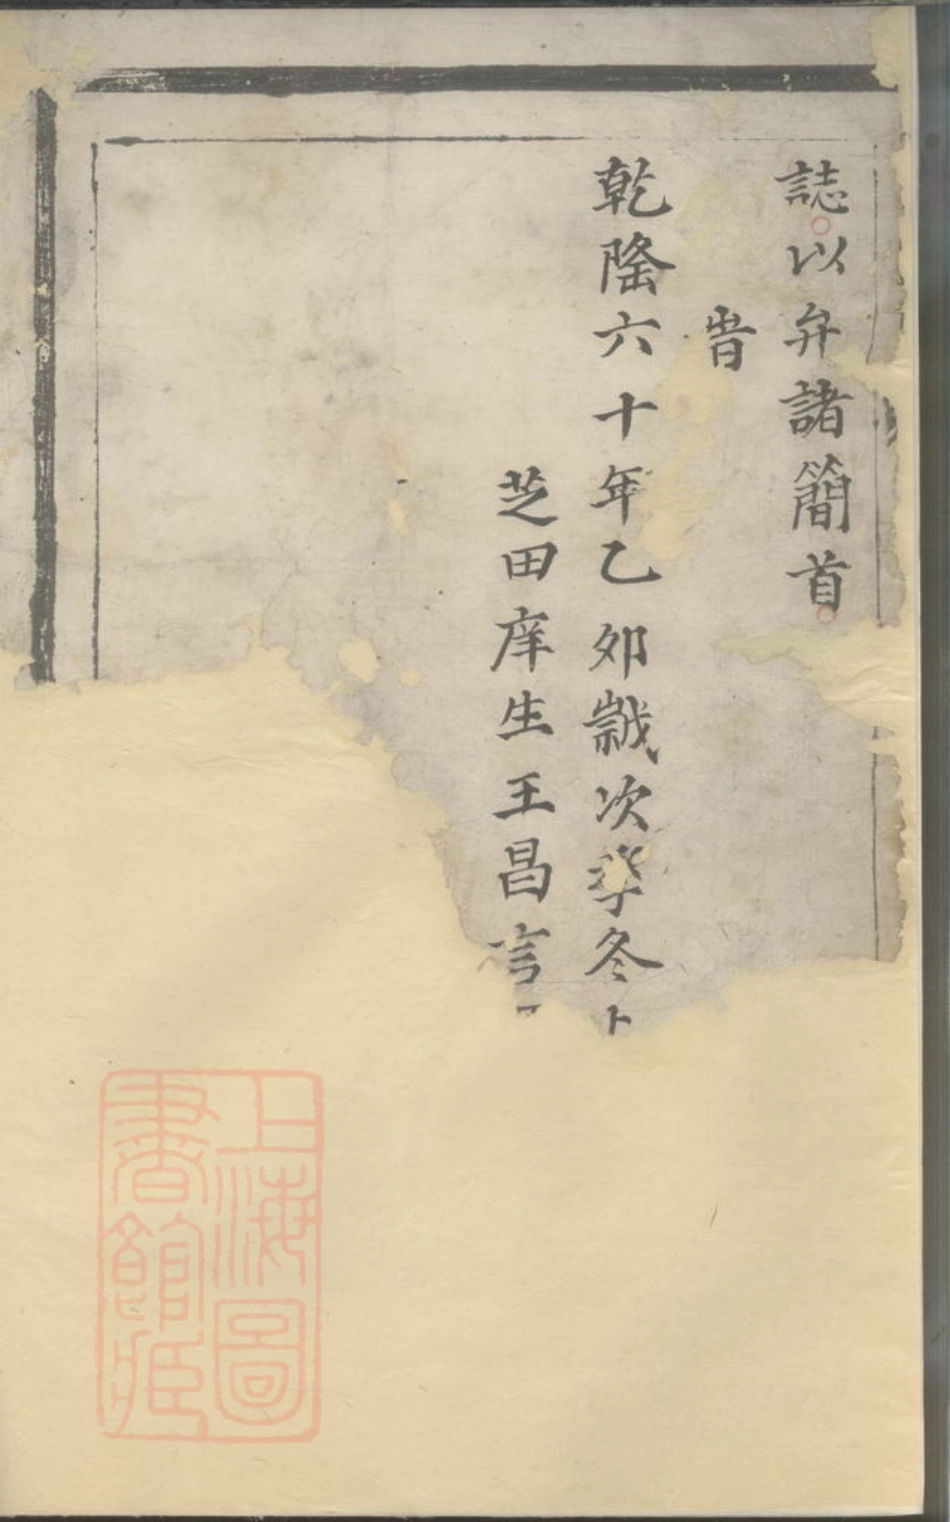 誌以弁諸簡首
旹
乾隆六十年乙夘歲次季冬
芝田庠生王昌言
上海圖書館藏